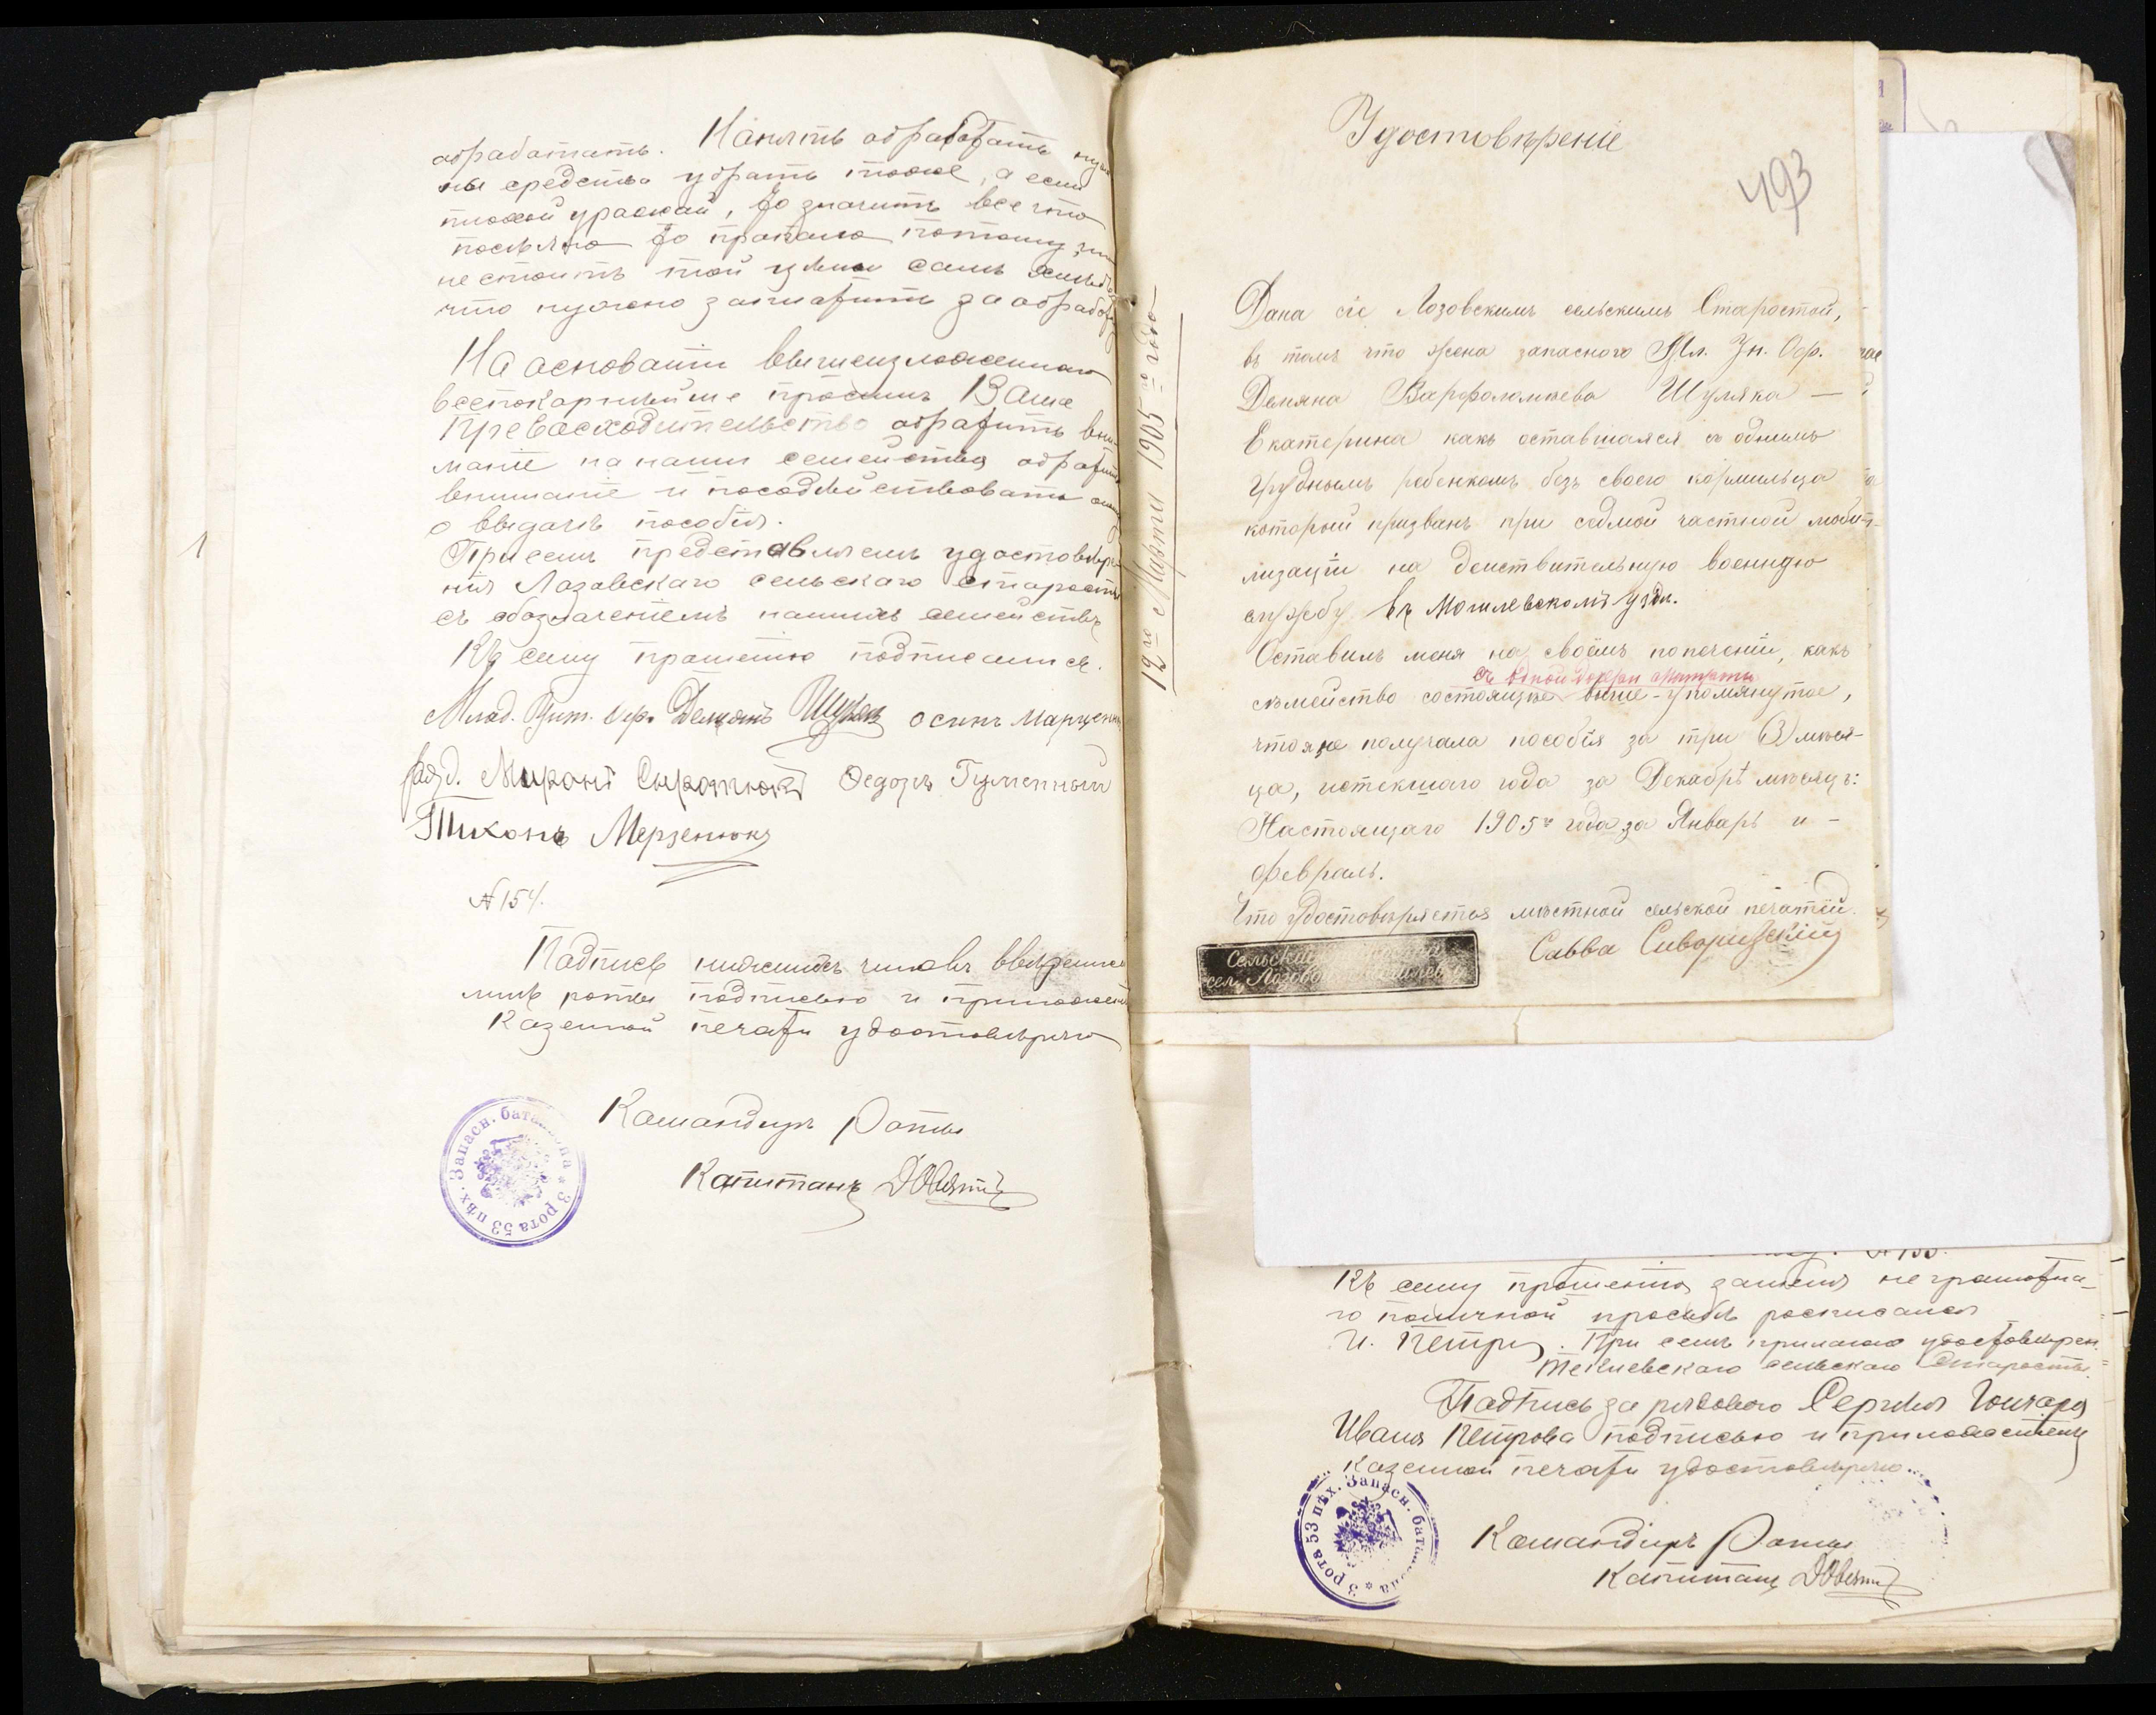 обработать. Нанять обработать нуж
ны средства убрать тоже, а если
плохой урожай, то значить все что
посеяно то пропало потому что
не стоить той цены самъ хлебъ
что нужно заплатить за обработ
На основаніи вышеизложеннаго
всепокорнѣйше просимъ Ваше
Превосходительство обратить вни
маніе на наши семейства обратить
вниманіе и посодѣйствовать
о выдачѣ пособія.
При семъ представляемъ удостовѣре
нія Лозовскаго сельскаго старосты
съ обозначеніемъ нашихъ семействъ
Къ сему прошенію подписались.
Млад. Унт. Офр. Демянъ Шулякъ осипъ Марценюкъ
Ряд. Миронъ Сиротюкъ Федоръ Гуменный
Тихонъ Мерзенюкъ
№ 154.
Подпись нижнихъ чиновъ ввѣренной
мнѣ роты подписью и приложеніемъ
Казенной печати удостовѣряю
Командиръ Роты
Капитанъ
3 рота 53 пѣх. Запасн. баталіона
1
12го Марта 1905го года
Удостовѣреніе
493
Дана сіе Лозовскимъ сельскимъ Старостой,
въ томъ что жена запасного Мл. Ун. Офр.
Демяна Варфоломѣева Шуляка —
Екатерина какъ оставшаяся съ однимъ
груднымъ ребенкомъ безъ своего кормильца
который призванъ при седмой частной моби-
лизаціи на деиствительную военную
службу въ Могилевскомъ уздѣ.
Оставилъ меня на своемъ попеченіи, какъ
съ одной дочери Матроны
съмейство состоящее выше-упомянутое,
что я не получала пособія за три (3) мѣся-
ца, истекшаго года за Декабрь мѣсяцъ:
Настоящаго 1905го года за Январь и -
февраль.
Что удостовѣряется мѣстной сельской печатій.
Савва Сиворизскій
Сельскій
сел. Лозовой
№ 155.
Къ сему прошенію замѣня неграмотна-
го по личной просьбѣ росписался
И. Петри. При семъ прилагаю удостовѣрен.
сельскаго Старосты.
Подпись за рядового Сергѣя Гончара
Ивана Петрова подписью и приложеніемъ
казенной печати удостовѣряю.
3 рота 53 пѣх. Запасн. баталіона
Командиръ Роты
Капитанъ